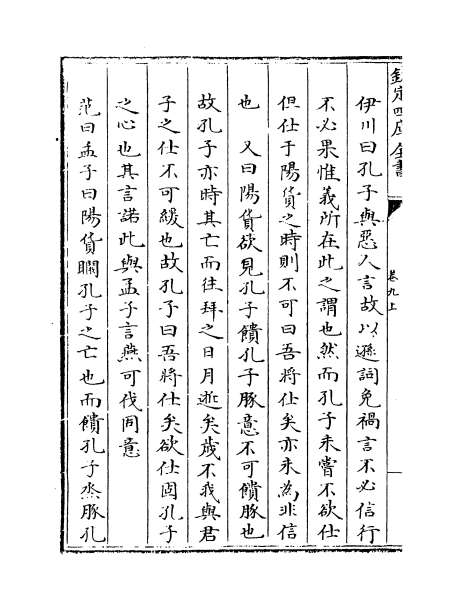 欽定四庫全書
卷九上
伊川曰孔子與惡人言故以遜詞免禍言不必信行
不必果惟義所在此之謂也然而孔子未嘗不欲仕
但仕于陽貨之時則不可曰吾將仕矣亦未為非信
也　又曰陽貨欲見孔子饋孔子豚意不可饋豚也
故孔子亦時其亡而往拜之日月逝矣歲不我與君
子之仕不可緩也故孔子曰吾將仕矣欲仕固孔子
之心也其言諾此與孟子言燕可伐同意
范曰孟子曰陽貨矙孔子之亡也而饋孔子烝豚孔